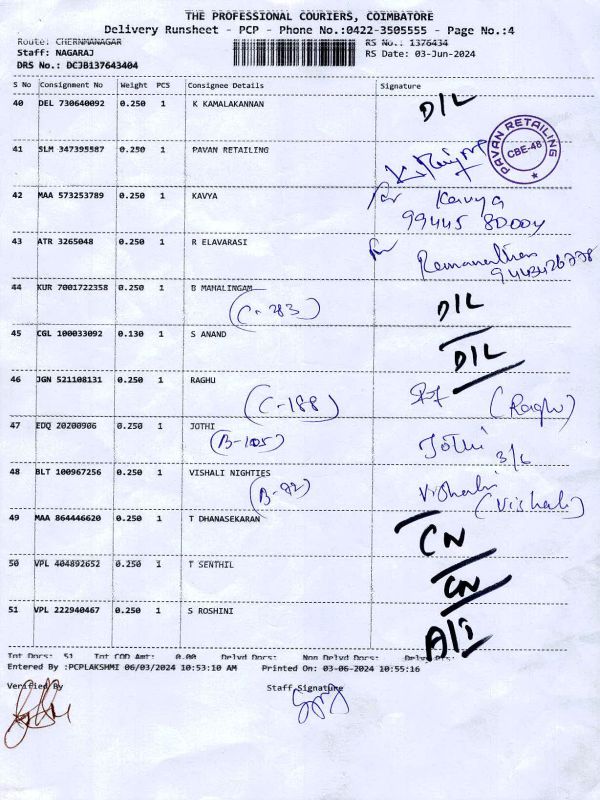 THE PROFESSIONAL COURIERS, COIMBATORE
Delivery Runsheet - PCP - Phone No.:0422-3505555 - Page No.:4
Route: CHERNMANAGAR RS No.: 1376434
Staff: NAGARAJ RS Date: 03-Jun-2024
DRS No.: DCJB137643404
S No Consignment No Weight PCS Consignee Details Signature
40 DEL 730640092 0.250 1 K KAMALAKANNAN D/L
41 SLM 347395587 0.250 1 PAVAN RETAILING
PAVAN RETAILING CBE-48
42 MAA 573253789 0.250 1 KAVYA for Kavya
99445 80004
43 ATR 3265048 0.250 1 R ELAVARASI for
9443426778
44 KUR 7001722358 0.250 1 B MAHALINGAM D/L
C-283
45 CGL 100033092 0.130 1 S ANAND D/L
46 JGN 521108131 0.250 1 RAGHU (Raghu)
(C-188)
47 EDQ 20200906 0.250 1 JOTHI Jothi 3/6
(B-105)
48 BLT 100967256 0.250 1 VISHALI NIGHTIES Vishali
(B-92) (Vishali)
49 MAA 864446620 0.250 1 T DHANASEKARAN CN
50 VPL 404892652 0.250 1 T SENTHIL CN
51 VPL 222940467 0.250 1 S ROSHINI
Tot Docs: 51 Tot COD Amt: 0.00 Delvd Docs: Non Delvd Docs: Delvd
Entered By :PCPLAKSHMI 06/03/2024 10:53:10 AM Printed On: 03-06-2024 10:55:16
Verified By Staff Signature